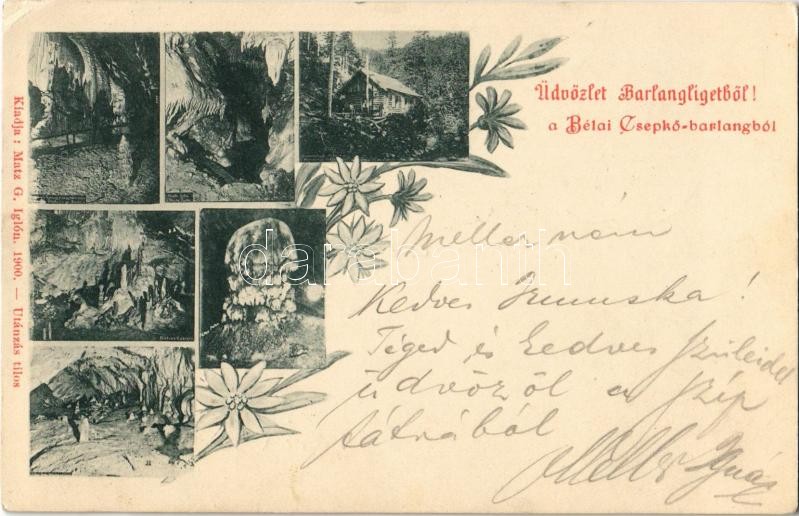 Üdvözlet Barlangligetből!
a Bélai Csepkő-barlangból
Kiadja: Matz G. Iglón. 1900. — Utánzás tilos
darabanth
Kedves
Téged és kedves szüleidet
üdvözöl a szép
tátrából